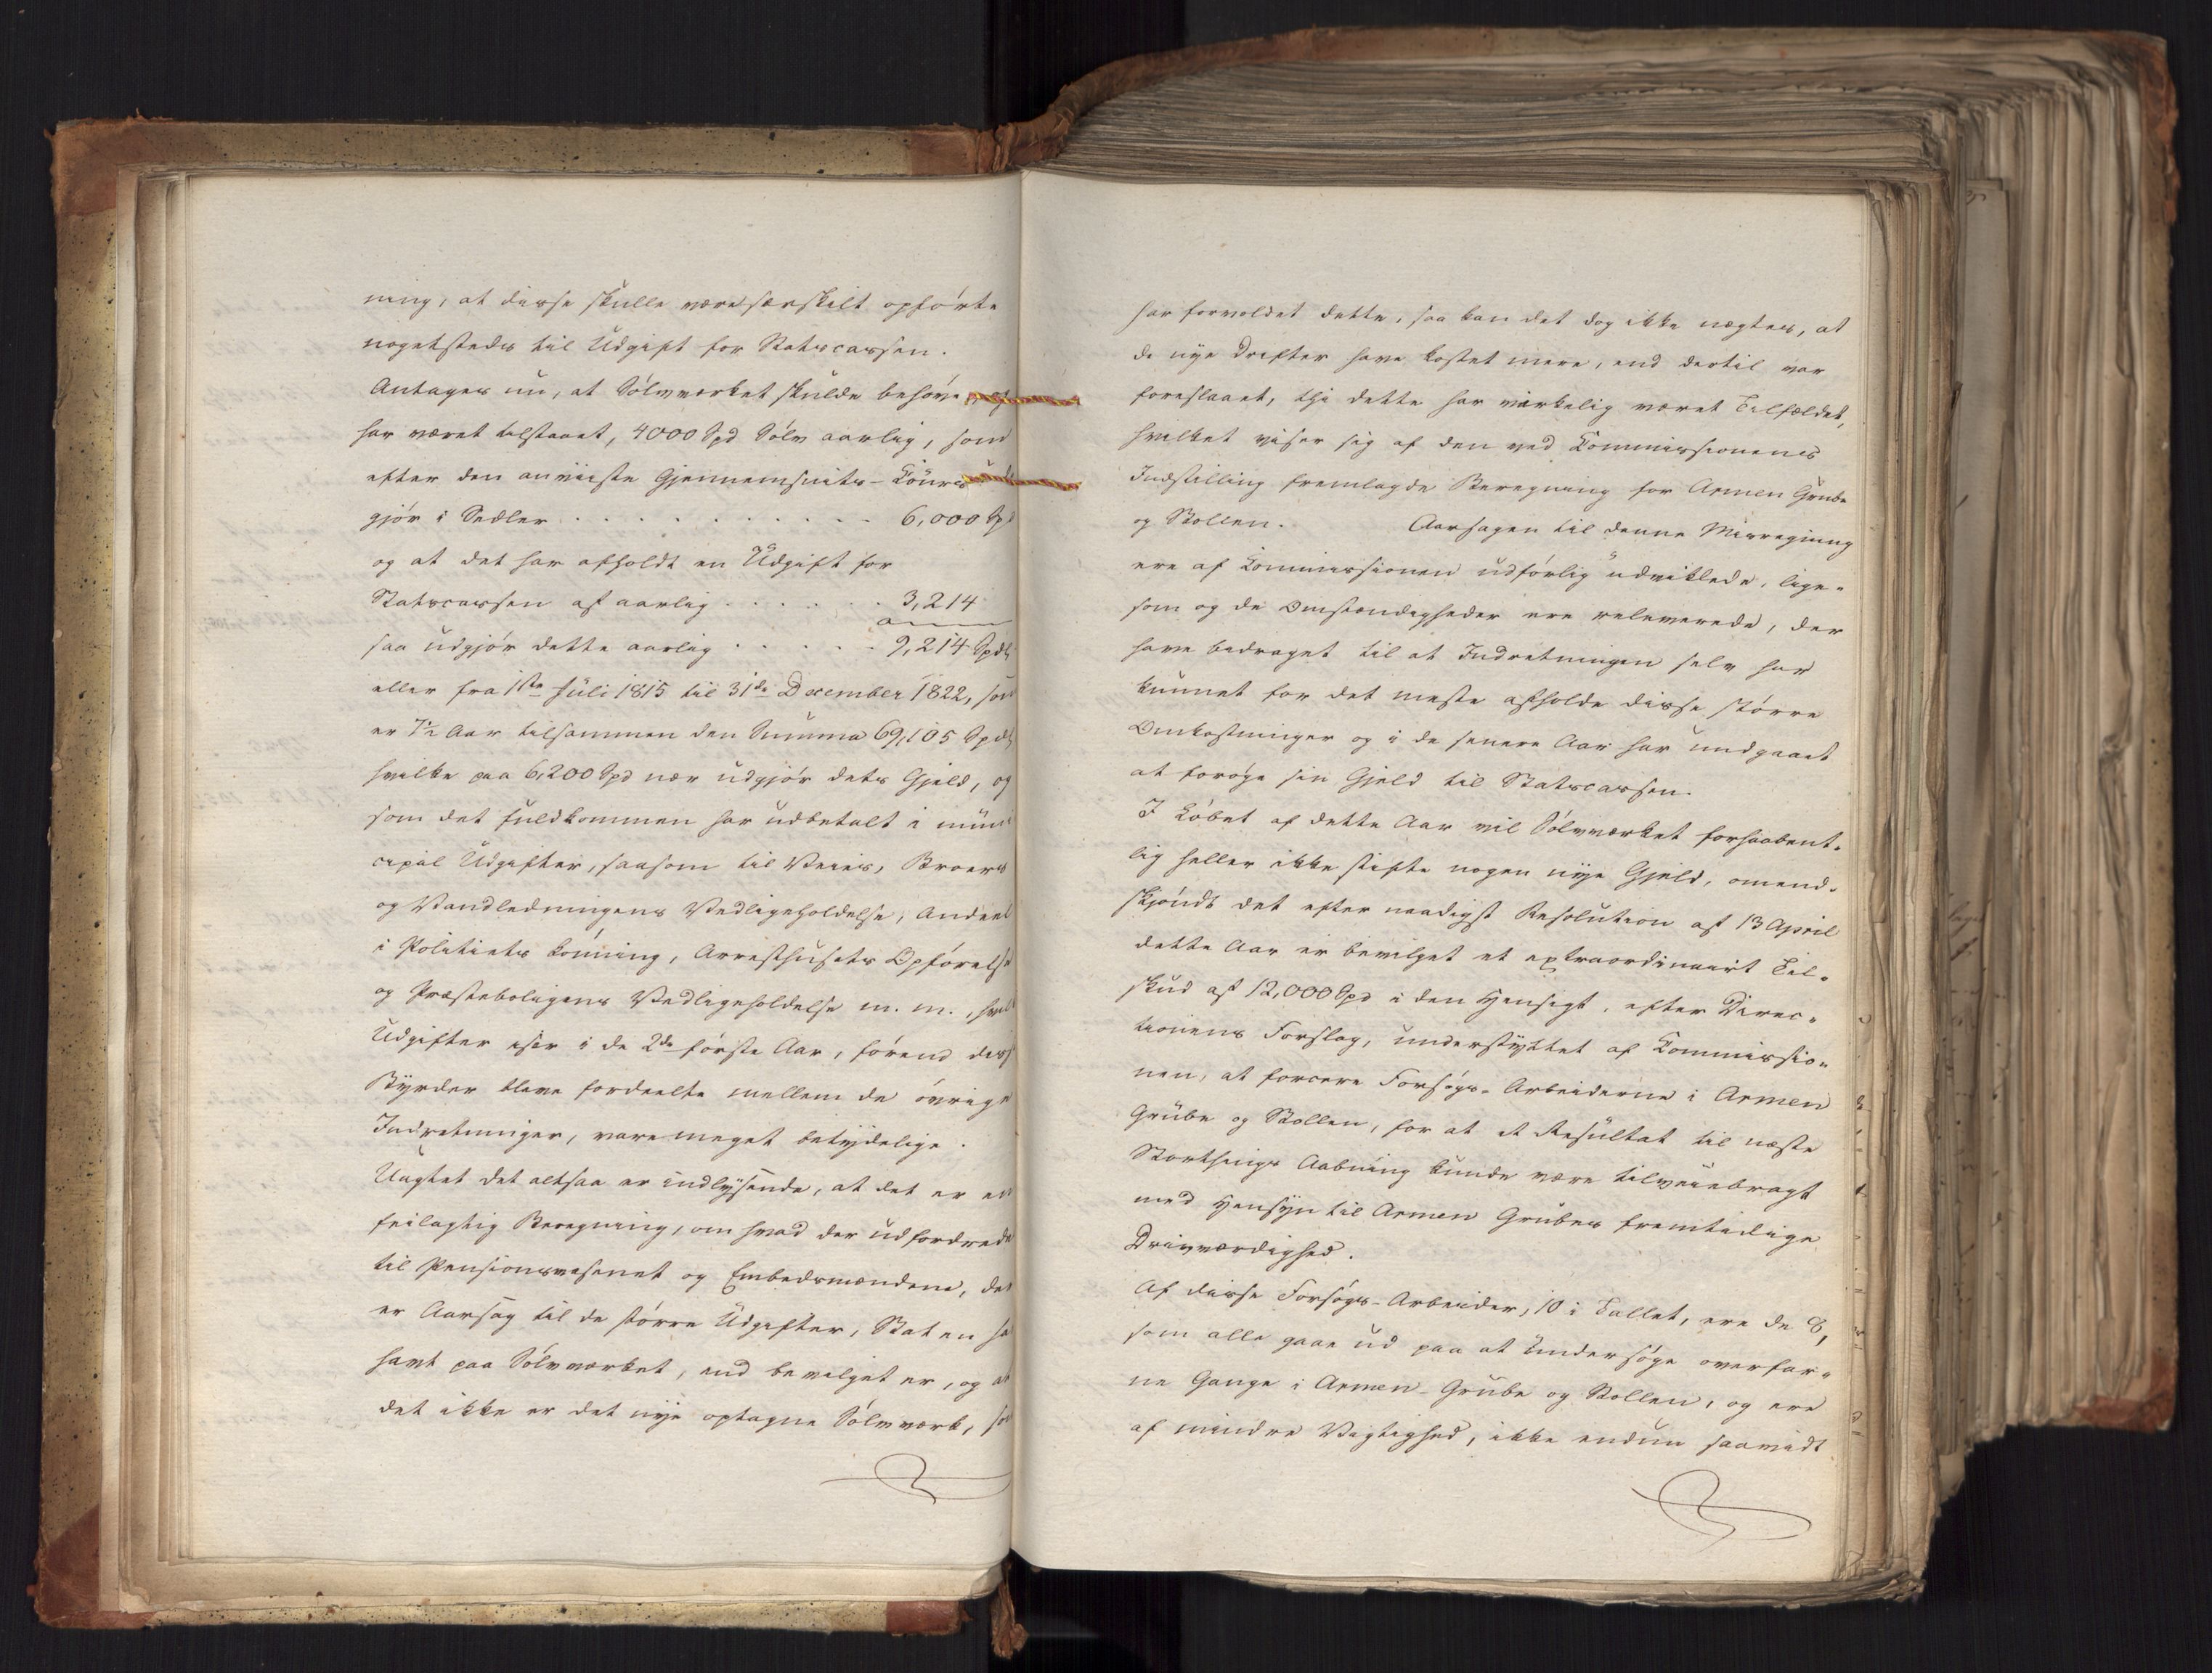 ning, at disse skulle være særskilt opförte
nogetsteds til Udgift for Statscassen.
Antages nu, at Sölvværket skulde behöve, og
har været tilstaaet, 4000 Spd Sölv aarlig, som
efter den anviiste Gjennemsnits-Cours
gjör i Sedler . . . . . . . . . . . 6,000 Spd
og at det har afholdt en Udgift for
Statscassen af aarlig . . . . . . 3,214
saa udgjör dette aarlig . . . . . 9,214 Spd
eller fra 1ste Juli 1815 til 31de December 1822, som
er 7½ Aar tilsammen den Summa 69,105 Spd
hvilke paa 6,200 Spd nær udgjör dets Gjeld, og
som det fuldkommen har udbetalt i muni
cipal Udgifter, saasom til Veies, Broers
og Vandledningens Vedligeholdelse, Andeel
i Politiets Lönning, Arresthusets Opförelse
og Præsteboligens Vedligeholdelse m. m., hvil
Udgifter især i de 2de förste Aar, förend disse
Byrder bleve fordeelte mellem de övrige
Indretninger, vare meget betydelige.
Uagtet det altsaa er indlysende, at det er en
feilagtig Beregning, om hvad der udfordrede
til Pensionsvæsenet og Embedsmændene, der
er Aarsag til de större Udgifter, Staten ha
havt paa Sölvværket, end bevilget er, og at
det ikke er det nye optagne Sölvværk, som
har forvoldet dette, saa kan det dog ikke nægtes, at
de nye Drifter have kostet mere, end dertil var
foreslaaet, thi dette har virkelig været Tilfældet,
hvilket viser sig af den ved Commissionens
Indstilling fremlagde Beregning for Armen Grube
og Stollen. Aarsagen til denne Misregning
ere af Commissionen udförlig udviklede, lige-
som og de Omstændigheder ere releverede, der
have bidraget til at Indretningen selv har
kunnet for det meste afholde disse större
Omkostninger og i de senere Aar har undgaaet
at foröge sin Gjeld til Statscassen.
I Löbet af dette Aar vil Sölvværket forhaabent-
lig heller ikke stifte nogen nye Gjeld, omend-
skjöndt det efter naadigst Resolution af 13 April
dette Aar er bevilget et extraordinairt Til-
skud af 12,000 Spd i den Hensigt, efter Direc-
tionens Forslag, understyttet af Commissio-
nen, at forcere Forsögs-Arbeiderne i Armen
Grube og Stollen, for at et Resultat til næste
Storthings Aabning kunde være tilveiebragt
med Hensyn til Armen Grubes fremtidige
Drivværdighed.
Af disse Forsögs-Arbeider, 10 i Tallet, ere de 8,
som alle gaae ud paa at undersöge overfar-
ne Gange i Armen-Grube og Stollen, og ere
af mindre Vigtighed, ikke endnu saavidt